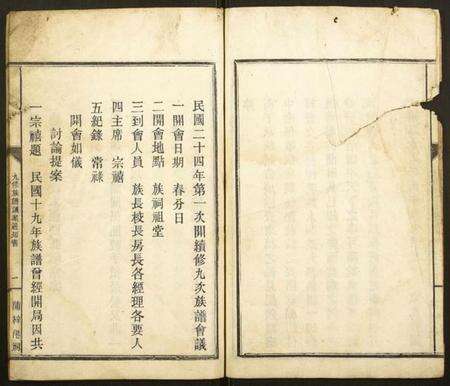 民國二十四年第一次開續修九次族譜會議
一開會日期　春分日
二開會地點　族祠祖堂
三到會人員　族長校長房長各經理各要人
四主席　宗禧
五紀錄　常祿
開會如儀
討論提案
一宗禧題　民國十九年族譜曾經開局因共
九修族譜議案通知書
一